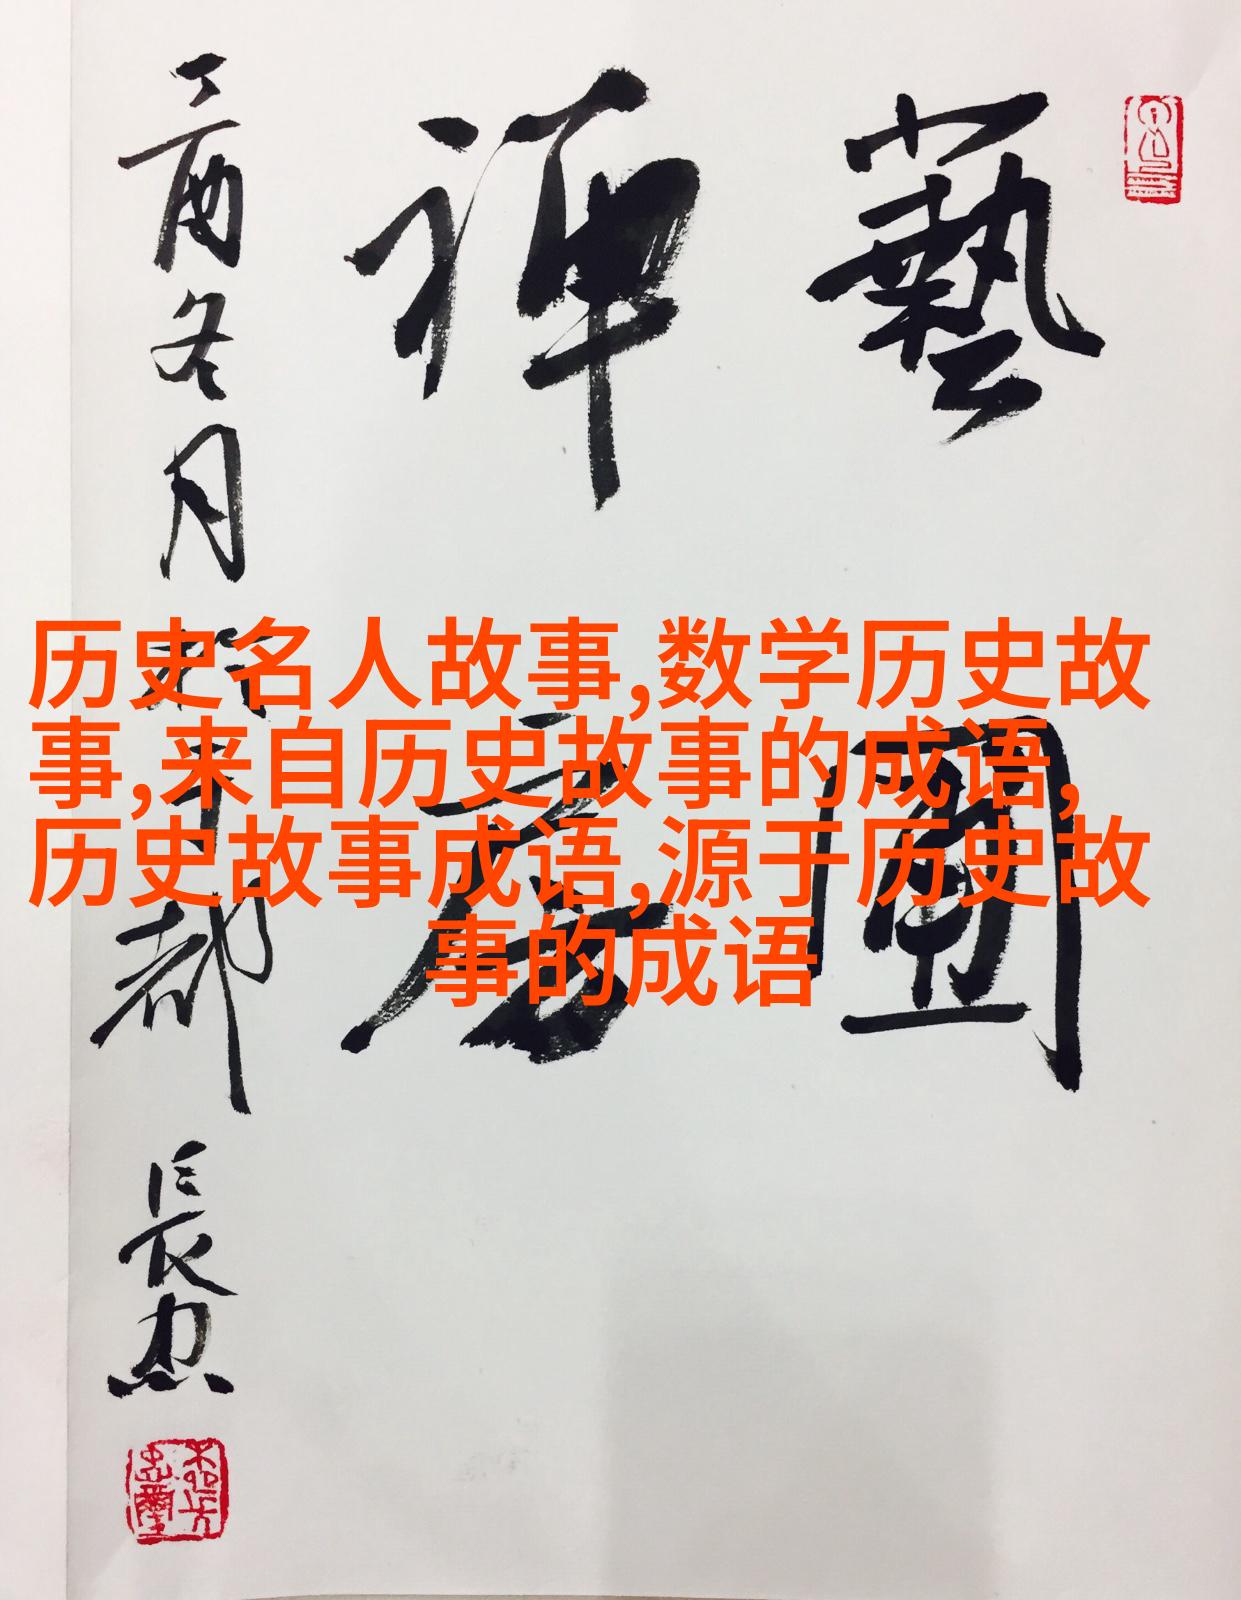 藝圃
禪房
丁酉冬月於
都
長忠
历史名人故事,数学历史故
事,来自历史故事的成语,
历史故事成语,源于历史故
事的成语